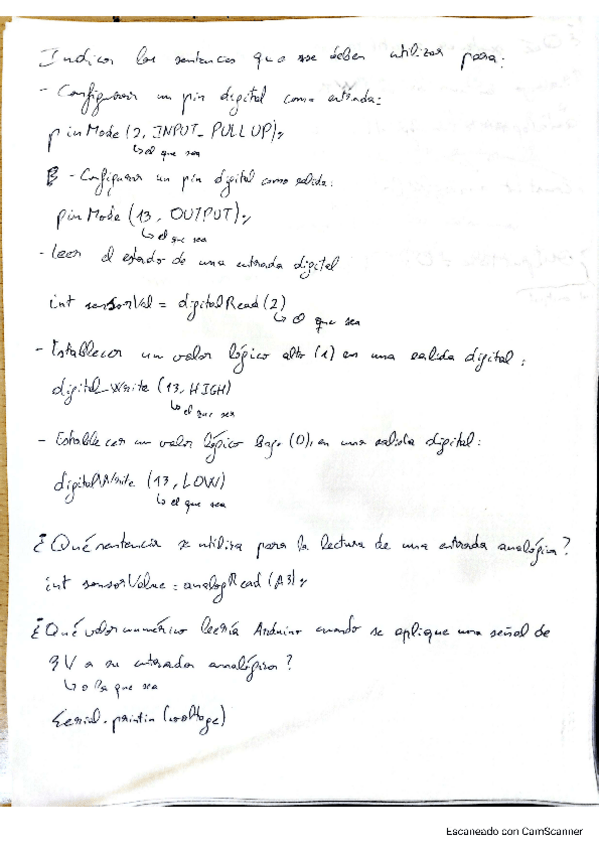 Indicar las sentencias que se deben utilizar para:
- Configurar un pin digital como entrada:
pinMode (2, INPUT_PULLUP);
↳ el que sea
- Configurar un pin digital como salida:
pinMode (13, OUTPUT);
↳ el que sea
- Leer el estado de una entrada digital
int sensorVal = digitalRead (2)
↳ el que sea
- Establecer un valor lógico alto (1) en una salida digital:
digital_Write (13, HIGH)
↳ el que sea
- Establecer un valor lógico bajo (0), en una salida digital:
digitalWrite (13, LOW)
↳ el que sea
¿Qué sentencia se utiliza para la lectura de una entrada analógica?
int sensorValue = analogRead (A3);
¿Qué valor numérico leería Arduino cuando se aplique una señal de
V a su entrada analógica?
↳ o la que sea
Serial.printin (voltage)
Escaneado con CamScanner